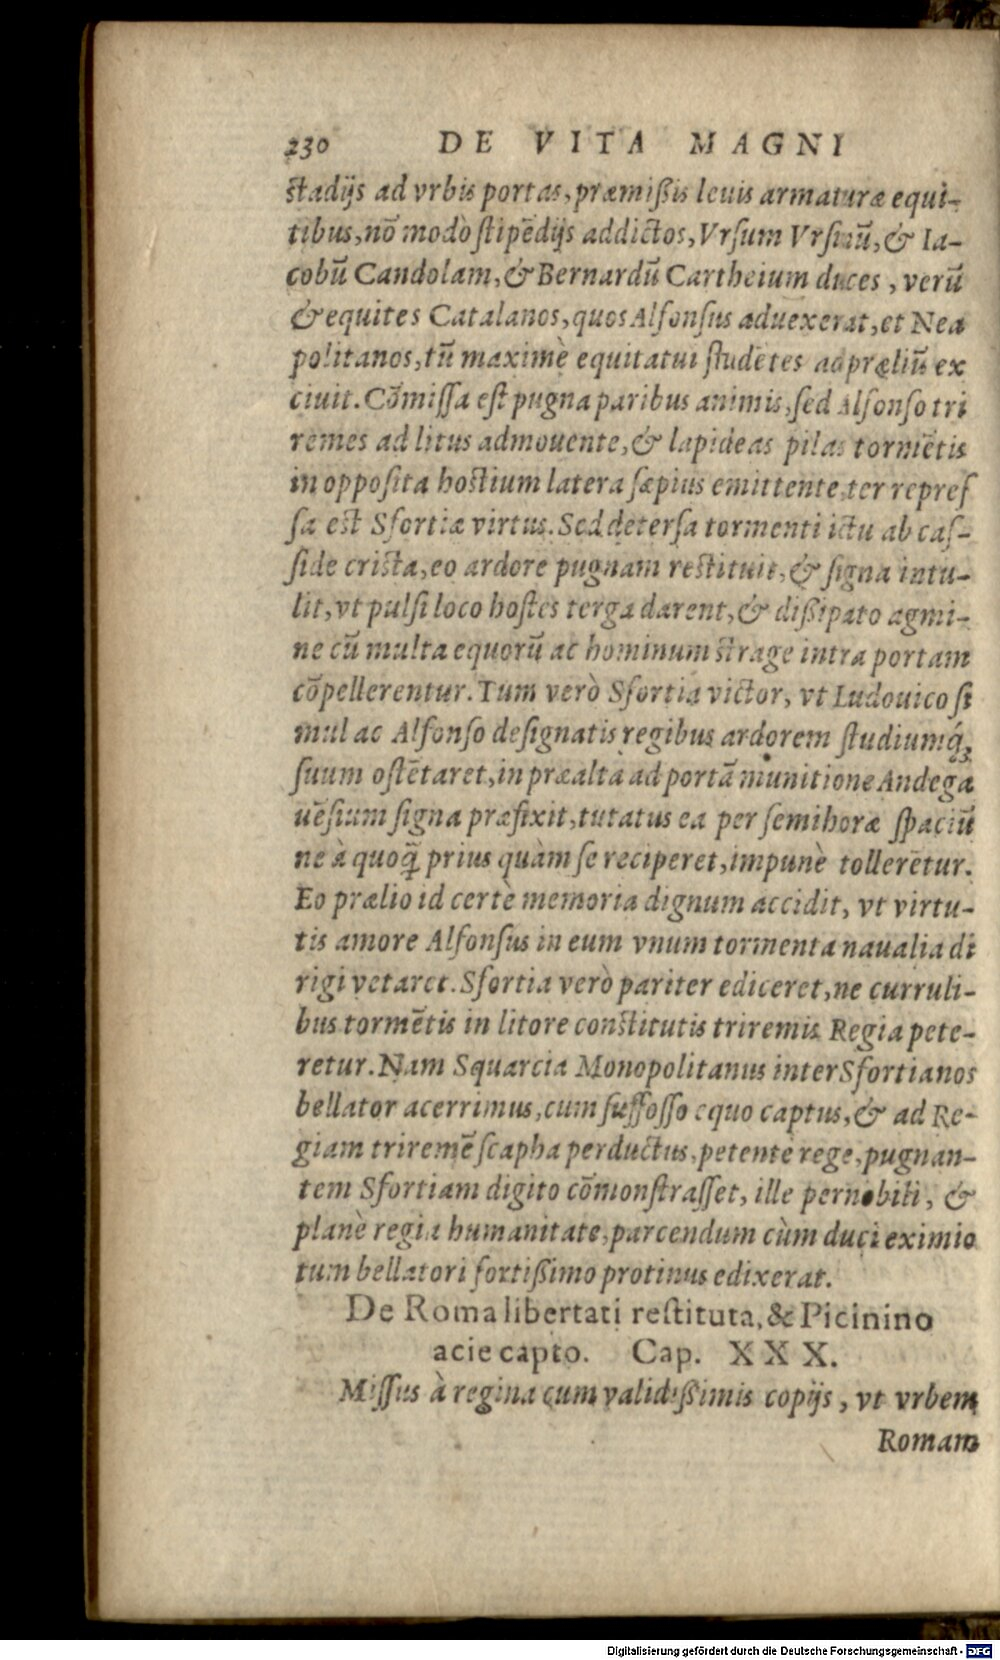 230 DE VITA MAGNI
stadijs ad vrbis portas, præmißis leuis armaturæ equi-
tibus, nō modò stipēdijs addictos, Vrsum Vrsinū, & Ia-
cobū Candolam, & Bernardū Cartheium duces, verū
& equites Catalanos, quos Alfonsus aduexerat, et Nea
politanos, tū maximè equitatui studētes ad prælíū ex
ciuit. Cōmissa est pugna paribus animis, sed Alfonso tri
remes ad litus admouente, & lapideas pilas tormētis
in opposita hostium latera sæpius emittente, ter repres
sa est Sfortiæ virtus. Sed detersa tormenti ictu ab cas-
side crista, eo ardore pugnam restituit, & signa intu-
lit, vt pulsi loco hostes terga darent, & dißipato agmi-
ne cū multa equorū ac hominum strage intra portam
cōpellerentur. Tum verò Sfortia victor, vt Ludouico si
mul ac Alfonso designatis regibus ardorem studiumq́;
suum ostētaret, in præalta ad portā munitione Andega
uēsium signa præfixit, tutatus ea per semihoræ spaciū
ne à quoq̃ prius quàm se reciperet, impunè tollerētur.
Eo prælio id certè memoria dignum accidit, vt virtu-
tis amore Alfonsus in eum vnum tormenta naualia di
rigi vetaret. Sfortia verò pariter ediceret, ne curruli-
bus tormētis in litore constitutis triremis Regia pete-
retur. Nam Squarcia Monopolitanus inter Sfortianos
bellator acerrimus, cum suffosso equo captus, & ad Re-
giam triremē scapha perductus, petente rege, pugnan-
tem Sfortiam digito cōmonstrasset, ille pernobili, &
planè regia humanitate, parcendum cùm duci eximio
tum bellatori fortißimo protinus edixerat.
De Roma libertati restituta, & Picinino
acie capto. Cap. XXX.
Missus à regina cum validißimis copijs, vt vrbem
Romam
Digitalisierung gefördert durch die Deutsche Forschungsgemeinschaft - DFG